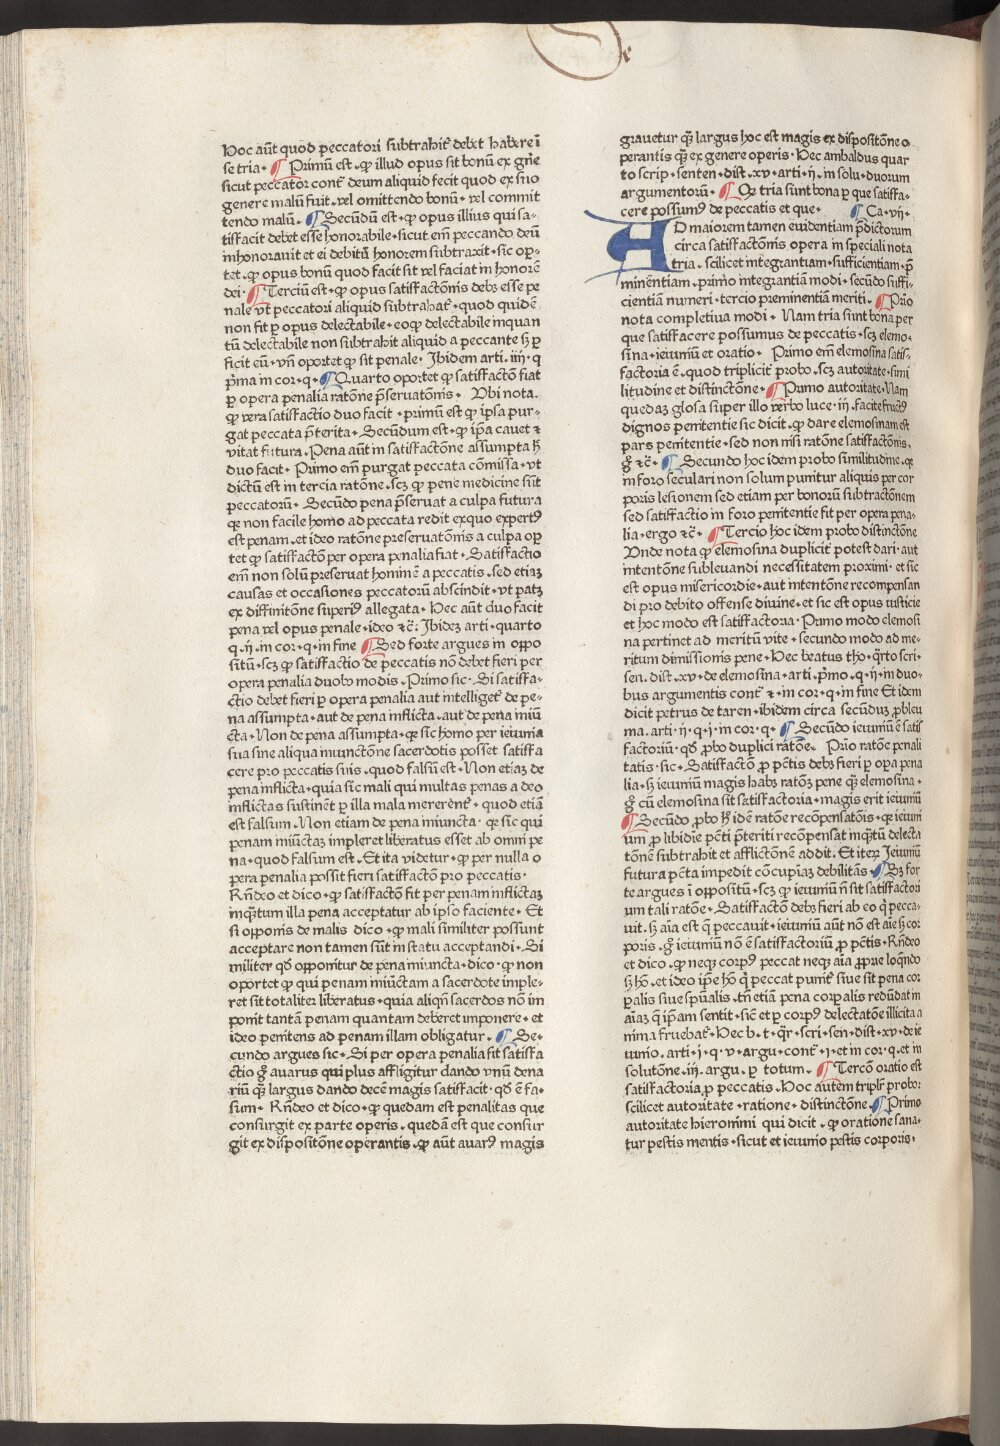 Hoc aūt quod peccatori subtrahit᷑ debet habere ī
se tria · ¶ Primū est · ꝙ illud opus sit bonū ex gn̄e
sicut peccator cont᷑ deum aliquid fecit quod ex suo
genere malū fuit · vel omittendo bonū · vel commit
tendo malū · ¶ Secūdū est · ꝙ opus illius qui sa-
tisfacit debet esse honorabile · sicut em̄ peccando deū
inhonorauit et ei debitū honorem subtraxit · sic op-
tet · ꝙ opus bonū quod facit sit vel faciat in honorē
dei · ¶ Terciū est · ꝙ opus satisfactōnis debꝫ esse pe
nale vt peccatori aliquid subtrahat᷑ · quod quidē
non fit ꝑ opus delectabile · eoꝙ delectabile inquan
tū delectabile non subtrahit aliquid a peccante sꝫ ꝑ
ficit eū · vn̄ oportet ꝙ sit penale · Ibidem arti · iij · q
pͥma in cor · q · ¶ Quarto oportet ꝙ satisfactō fiat
ꝑ opera penalia ratōne p̄seruatōnis · Vbi nota ·
ꝙ vera satisfactio duo facit · primū est ꝙ ipsa pur-
gat peccata p̄terita · Secūdum est · ꝙ ip̄a cauet ⁊
vitat futura · Pena aūt in satisfactōne assumpta h̄
duo facit · Primo em̄ purgat peccata cōmissa · vt
dictū est in tercia ratōne · scꝫ ꝙ pene medicine sūt
peccatorū · Secūdo pena p̄seruat a culpa futura
qꝛ non facile homo ad peccata redit exquo expertꝰ
est penam · et ideo ratōne preseruatōnis a culpa oꝑ
tet ꝙ satisfactō per opera penalia fiat · Satisfactio
em̄ non solū preseruat hominē a peccatis · sed etiaꝫ
causas et occasiones peccatorū abscindit · vt patꝫ
ex diffinitōne superiꝰ allegata · Hec aūt duo facit
pena vel opus penale · ideo ⁊c̄ · Ibideꝫ arti · quarto
q · ij · in cor · q · in fine ¶ Sed forte argues in oppo
sitū · scꝫ ꝙ satisfactio de peccatis nō debet fieri per
opera penalia duobꝰ modis · Primo sic · Si satisfa-
ctio debet fieri ꝑ opera penalia aut intelliget᷑ de pe-
na assumpta · aut de pena inflicta · aut de pena iniū
cta · Non de pena assumpta · qꝛ sic homo per ieiunia
sua sine aliqua iniunctōne sacerdotis posset satisfa
cere pro peccatis suis · quod falsū est · Non etiaꝫ de
pena inflicta · quia sic mali qui multas penas a deo
inflictas sustinēt ꝑ illa mala mererent᷑ · quod etiā
est falsum · Non etiam de pena iniuncta · qꝛ sic qui
penam iniūctaꝫ impleret liberatus esset ab omni pe
na · quod falsum est · Et ita videtur · ꝙ per nulla o
pera penalia possit fieri satisfactō pro peccatis ·
Rn̄deo et dico · ꝙ satisfactō fit per penam inflictaꝫ
inqͣtum illa pena acceptatur ab ipso faciente · Et
si opponis de malis dico · ꝙ mali similiter possunt
acceptare non tamen sūt in statu acceptandi · Si
militer qd̄ opponitur de pena iniuncta · dico · ꝙ non
oportet ꝙ qui penam iniūctam a sacerdote imple-
ret sit totaliter liberatus · quia aliqn̄ sacerdos nō im
ponit tantā penam quantam deberet imponere · et
ideo penitens ad penam illam obligatur · ¶ Se-
cundo argues sic · Si per opera penalia sit satisfa
ctio gͦ auarus qui plus affligitur dando vnū dena
riū qͣꝫ largus dando decē magis satisfacit · qd̄ ē fa-
sum · Rn̄deo et dico · ꝙ quedam est penalitas que
consurgit ex parte operis · quedā est que consur
git ex dispositōne operantis · ꝙ aūt auarꝰ magis
grauetur qͣꝫ largus hoc est magis ex dispositōne o
perantis qͣꝫ ex genere operis · Hec ambaldus quar
to scrip · senten · dist · xv · arti · ij · in solu · duorum
argumentorū · ¶ Qꝫ tria sunt bona per que satisfa-
cere possumꝰ de peccatis et que · ¶ Ca · vij ·
AD maiorem tamen euidentiam p̄dictorum
circa satisfactōnis opera in speciali nota
tria · scilicet integrantiam · sufficientiam · p̄
minentiam · primo integrantiā modi · secūdo suffi-
cientiā numeri · tercio preminentiā meriti · ¶ Pͥmo
nota completiua modi · Nam tria sunt bona per
que satisfacere possumus de peccatis · scꝫ elemo-
sina · ieiuniū et oratio · Primo em̄ elemosina satis-
factoria ē · quod tripliciter probo · scꝫ autoritate · simi
litudine et distinctōne · ¶ Primo autoritate · Nam
quedaꝫ glosa super illo verbo luce · iij · facite fructꝰ
dignos penitentie sic dicit · ꝙ dare elemosinam est
pars penitentie · sed non nisi ratōne satisfactōnis ·
gͦ ⁊c̄ · ¶ Secundo hoc idem probo similitudine · qꝛ
in foro seculari non solum punitur aliquis per cor
poris lesionem sed etiam per bonorū subtractōnem
sed satisfactio in foro penitentie fit per opera pena-
lia · ergo ⁊c̄ · ¶ Tercio hoc idem probo distinctōne
Vnde nota ꝙ elemosina duplicit᷑ potest dari · aut
intentōne subleuandi necessitatem proximi · et sic
est opus misericordie · aut intentōne recompensan
di pro debito offense diuine · et sic est opus iusticie
et hoc modo est satisfactoria · Primo modo elemosi
na pertinet ad meritū vite · secundo modo ad me-
ritum dimissionis pene · Hec beatus tho · qͣrto scri-
sen · dist · xv · de elemosina · arti · pͥmo · q · ij · in duo-
bus argumentis cont᷑ ⁊ · in cor · q · in fine Et idem
dicit petrus de taren · ibidem circa secūduꝫ ꝓbleu
ma · arti · ij · q · i · in cor · q · ¶ Secūdo ieiuniū ē satis
factoriū · qd̄ ꝓbo duplici ratōe · Pͥmo ratōe penali
tatis · sic · Satisfactō ꝓ pctīs debꝫ fieri ꝑ oꝑa pena
lia · sꝫ ieiuniū magis habꝫ ratōꝫ pene qͣꝫ elemosina ·
gͦ cū elemosina sit satisfactoria · magis erit ieiuniū
¶ Secūdo ꝓbo h̄ idē ratōe recōpensatōis · qꝛ ieiuni
um ꝓ libidie pctī p̄teriti recōpensat inqͣtū delecta
tōnē subtrahit et afflictōnē addit · Et iteꝫ Ieiuniū
futura pctā impedit cōcupiaꝫ debilitās · ¶ Sꝫ for
te argues ī oppositū · scꝫ ꝙ ieiuniū n̄ sit satisfactori
um tali ratōe · Satisfactō debꝫ fieri ab eo qͥ pecca-
uit · sꝫ aīa est q̄ peccauit · ieiuniū aūt nō est aīe sꝫ cor
poris · gͦ ieiuniū nō ē satisfactoriū ꝓ pctīs · Rn̄deo
et dico · ꝙ neqꝫ corpꝰ peccat neqꝫ aīa ꝓprie loqn̄do
sꝫ hō · et ideo ip̄e hō qͥ peccat punit᷑ siue sit pena cor
ꝑalis siue spūalis · tn̄ etiā pena corꝑalis redūdat in
aīaꝫ q̄ ip̄am sentit · sic̄ et ꝑ corpꝰ delectatōe illicita a
nima fruebat᷑ · Hec b · t · qͣr · scri · sen · dist · xv · de ie
iunio · arti · i · q · v · argu · cont᷑ · i · et in cor · q · et in
solutōne · iij · argu · ꝑ totum · ¶ Tercō oratio est
satisfactoria ꝓ peccatis · Hoc autem triplr̄ probo ·
scilicet autoritate · ratione · distinctōne · ¶ Primo
autoritate hieronimi qui dicit · ꝙ oratione sana-
tur pestis mentis · sicut et ieiunio pestis corporis ·